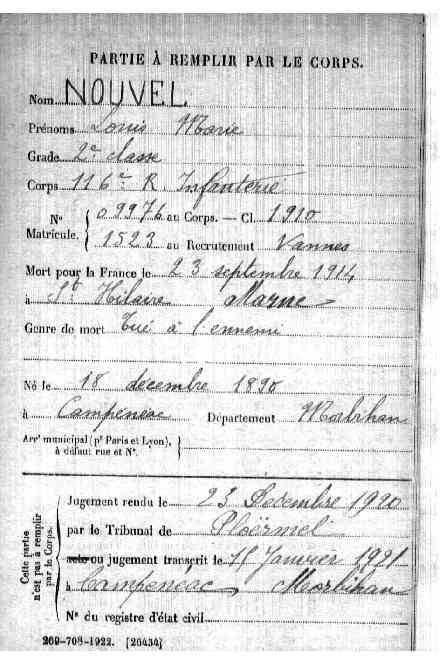 PARTIE À REMPLIR PAR LE CORPS.
Nom NOUVEL
Prénoms Louis Marie
Grade 2e classe
Corps 116e R. Infanterie
N° Matricule. { 09976 au Corps. — Cl. 1910
1523 au Recrutement Vannes
Mort pour la France le 23 septembre 1914
à St Hilaire Marne
Genre de mort Tué à l'ennemi
Né le 18 décembre 1890
à Campénéac Département Morbihan
Arrt municipal (pr Paris et Lyon),
à défaut rue et N°.
Cette partie n'est pas à remplir par le Corps.
Jugement rendu le 23 Decembre 1920
par le Tribunal de Ploërmel
acte ou jugement transcrit le 15 Janvier 1921
à Campénéac Morbihan
N° du registre d'état civil
269-708-1922. [26434]